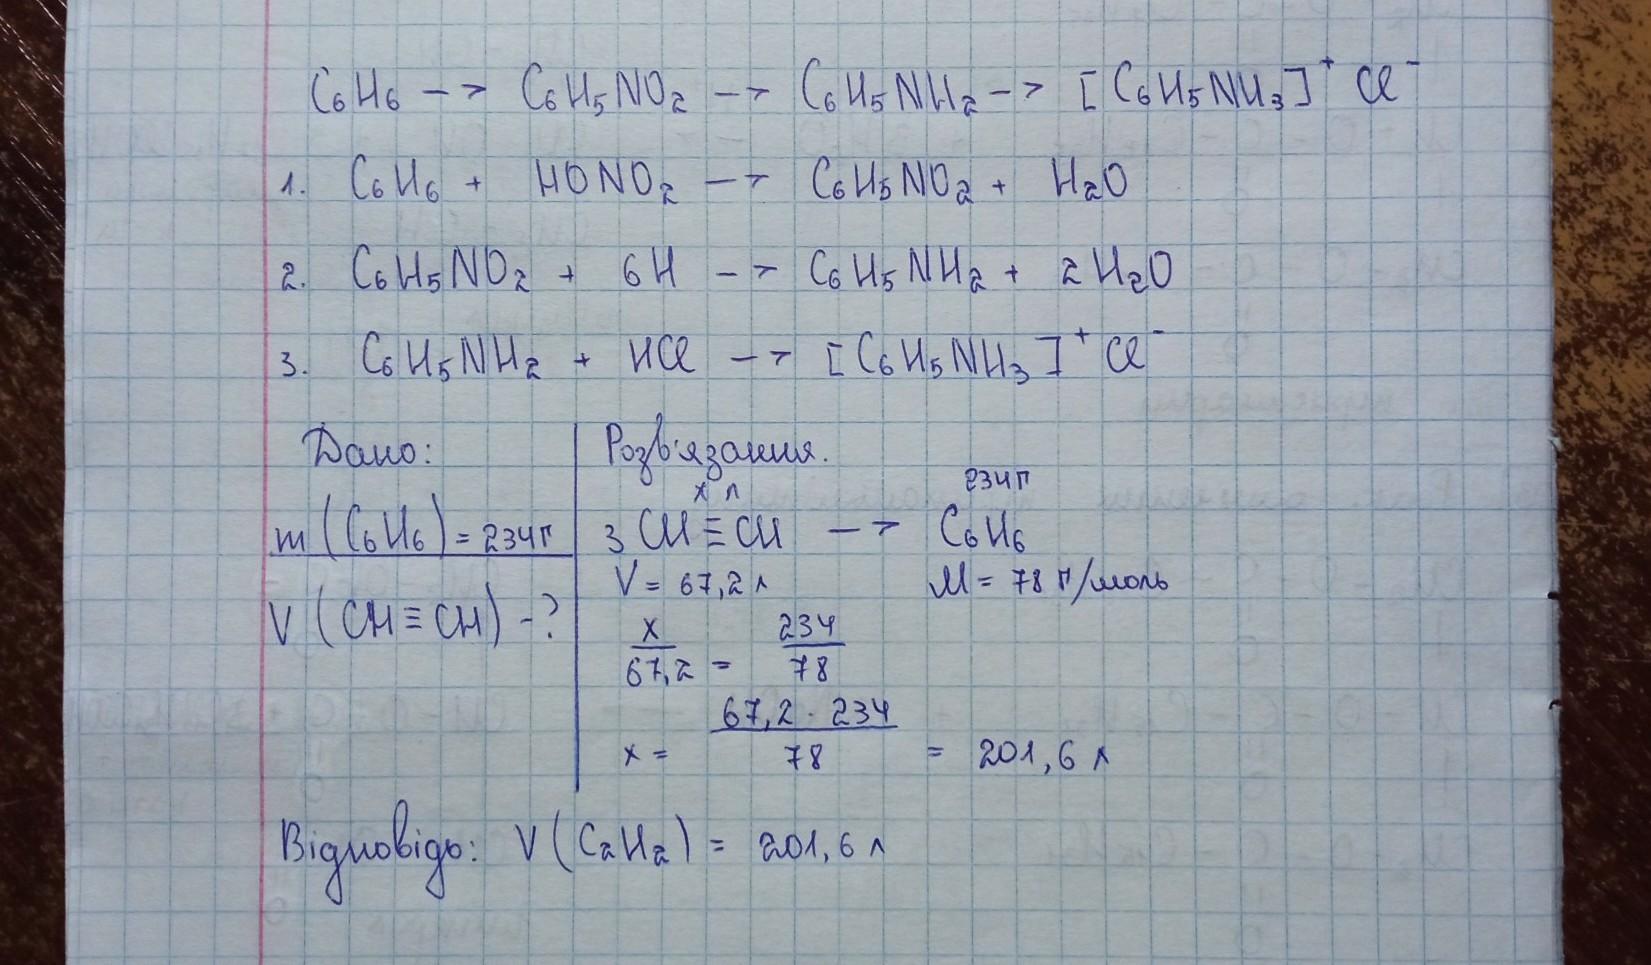 C₆H₆ -> C₆H₅NO₂ -> C₆H₅NH₂ -> [C₆H₅NH₃]⁺Cl⁻
1. C₆H₆ + HONO₂ -> C₆H₅NO₂ + H₂O
2. C₆H₅NO₂ + 6H -> C₆H₅NH₂ + 2H₂O
3. C₆H₅NH₂ + HCl -> [C₆H₅NH₃]⁺Cl⁻
Дано:
m(C₆H₆) = 234г
V(CH≡CH) - ?
Розв'язання.
x л 234г
3CH≡CH -> C₆H₆
V = 67,2 л M = 78 г/моль
x/67,2 = 234/78
x = 67,2 · 234/78 = 201,6 л
Відповідь: V(C₂H₂) = 201,6 л